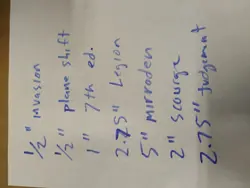 1/2" invasion
1/2" plane shift
1" 7th ed.
2.25" Legion
5" mirroden
2" scourge
2.75" judgement